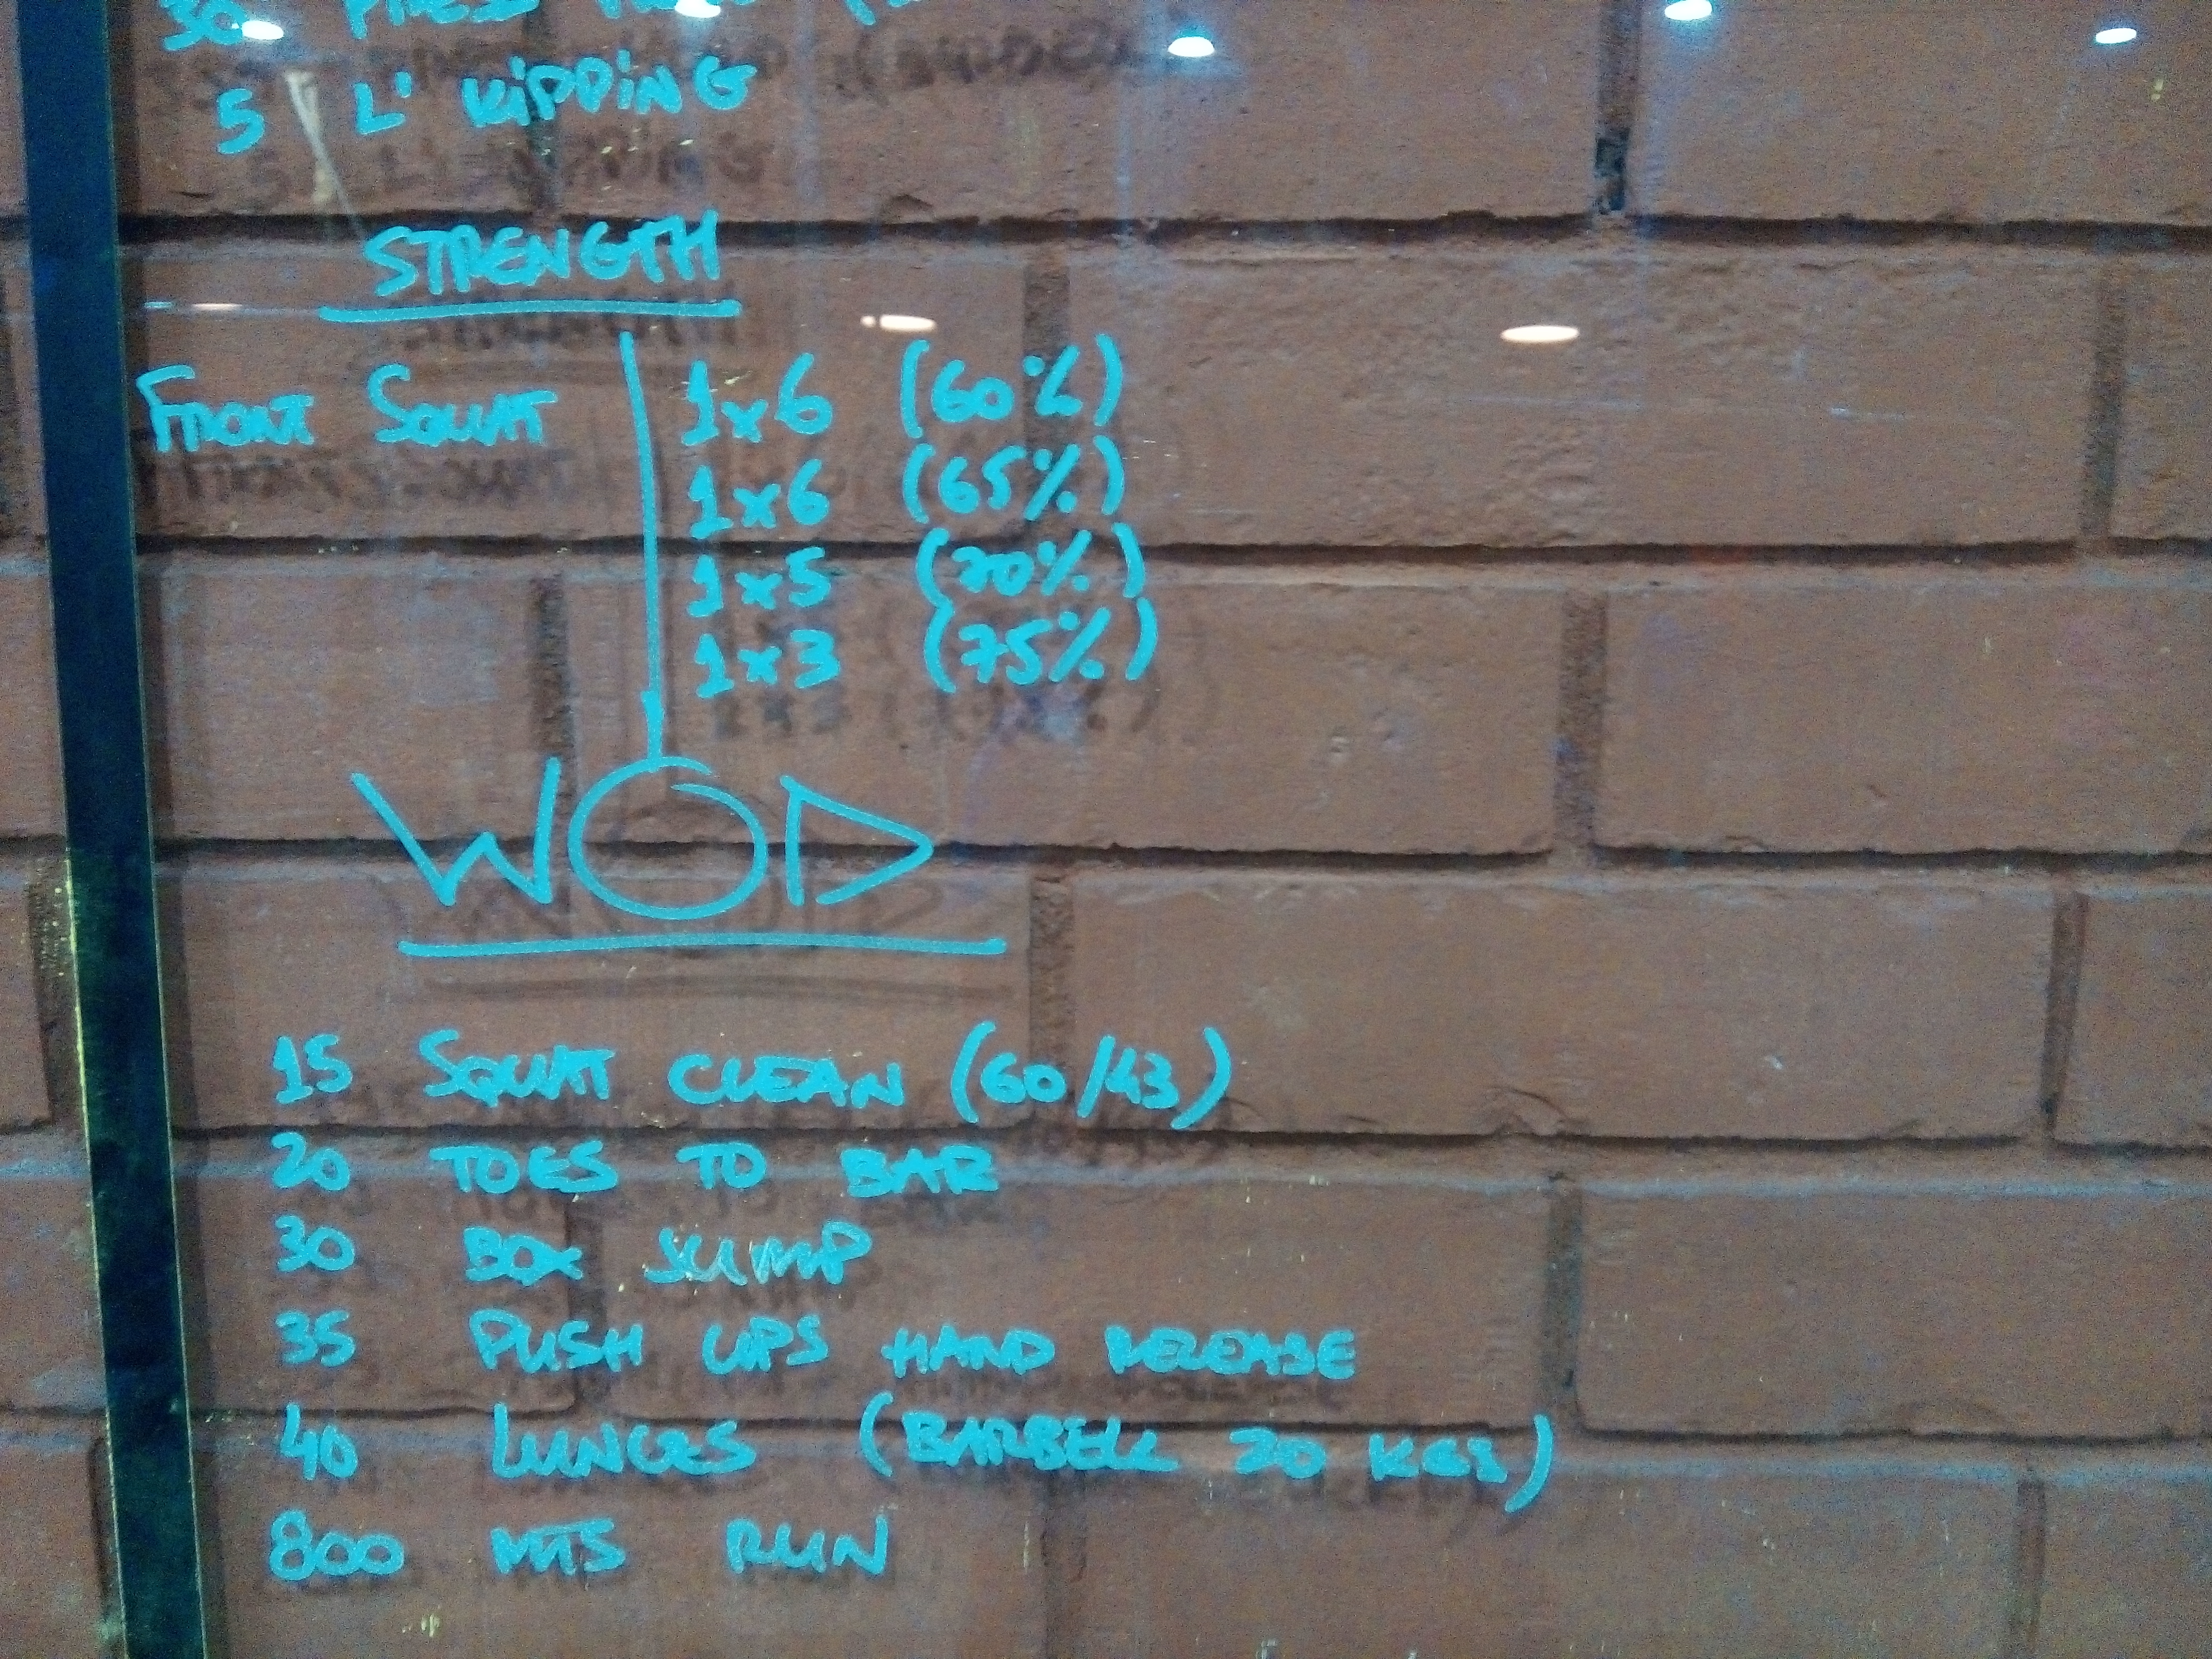 30 PRESS
5 L' KIPPING
STRENGTH
FRONT SQUAT 1x6 (60%)
1x6 (65%)
1x5 (70%)
1x3 (75%)
WOD
15 SQUAT CLEAN (60/43)
20 TOES TO BAR
30 BOX JUMP
35 PUSH UPS HAND RELEASE
40 LUNGES (BARBELL 20 KGS)
800 MTS RUN